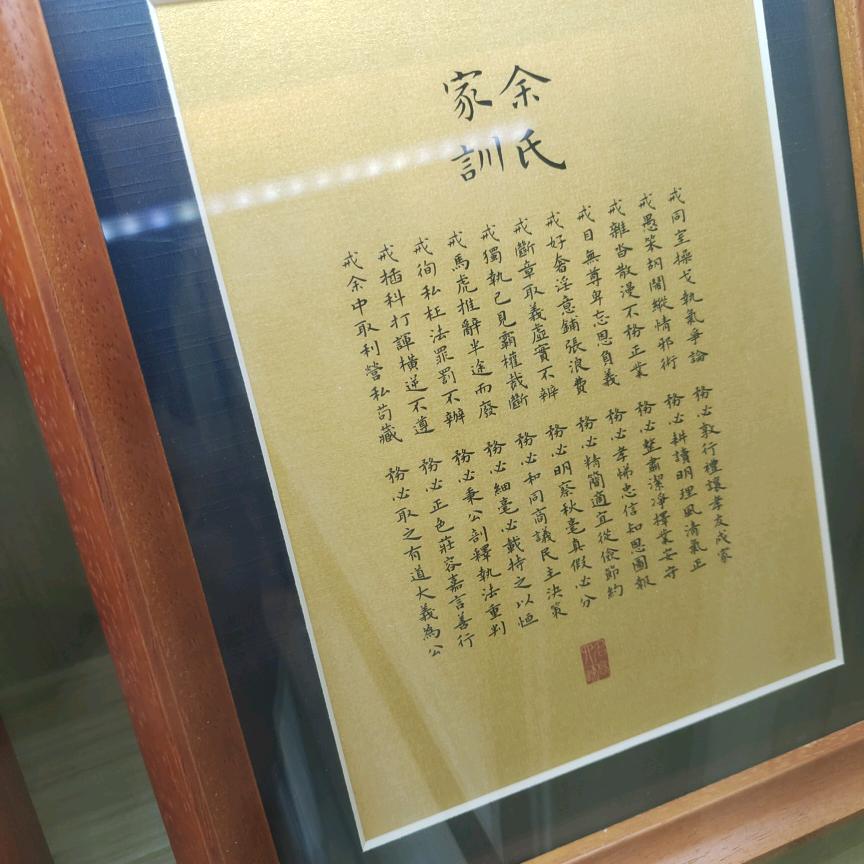 余氏
家訓
戒同室操戈執氣爭論 務必敦行禮讓孝友成家
戒愚笨胡鬧縱情邪術 務必耕讀明理風清氣正
戒雜沓散漫不務正業 務必整肅潔淨擇業安守
戒目無尊卑忘恩負義 務必孝悌忠信知恩圖報
戒好奢淫意鋪張浪費 務必精簡適宜從儉節約
戒斷章取義虛實不辨 務必明察秋毫真假必分
戒獨執己見霸權裁斷 務必和同商議民主決策
戒馬虎推辭半途而廢 務必細毫必載持之以恒
戒徇私枉法罪罰不辨 務必秉公剖釋執法重判
戒插科打諢橫逆不遵 務必正色莊容嘉言善行
戒余中取利營私苟藏 務必取之有道大義為公